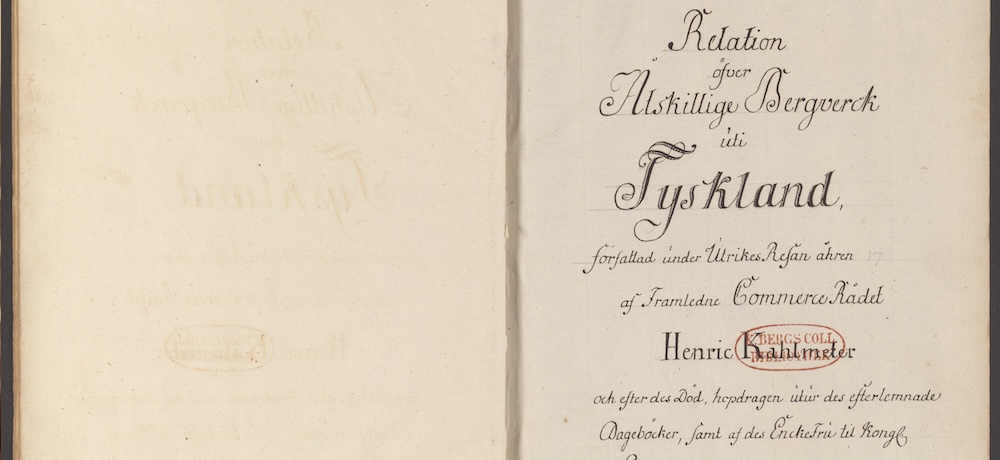 Relation
öfver
Åtskillige Bergverck
uti
Tyskland,
författad under Utrikes Resan åhren 17
af Framledne Commerce Rådet
Henric Kahlmeter
K. BERGS COLL.
BIBLIOTHEK
och efter des Död, hopdragen utur des efterlemnade
Dageböcker, samt af des Encke Fru til Kongl.